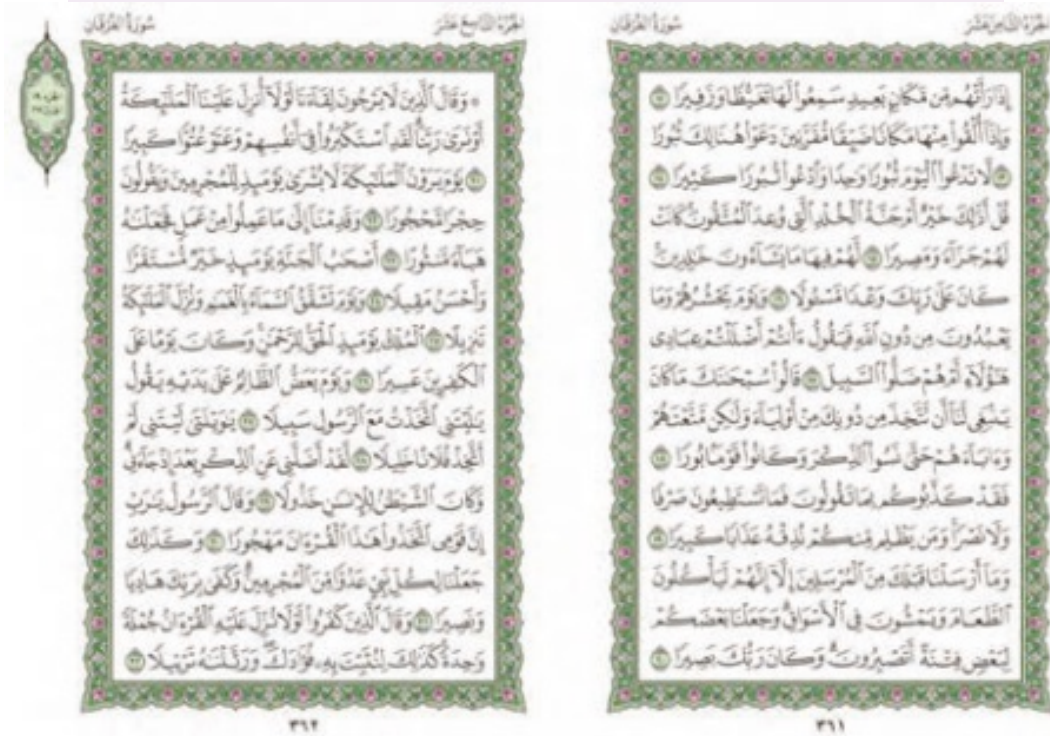 سُورَةُ الفُرْقَانِ
الجُزْءُ الثَّامِنَ عَشَرَ
إِذَا رَأَتْهُم مِّن مَّكَانٍ بَعِيدٍ سَمِعُوا۟ لَهَا تَغَيُّظًا وَزَفِيرًا ١٢
وَإِذَآ أُلْقُوا۟ مِنْهَا مَكَانًا ضَيِّقًا مُّقَرَّنِينَ دَعَوْا۟ هُنَالِكَ ثُبُورًا
١٣ لَّا تَدْعُوا۟ ٱلْيَوْمَ ثُبُورًا وَٰحِدًا وَٱدْعُوا۟ ثُبُورًا كَثِيرًا ١٤
قُلْ أَذَٰلِكَ خَيْرٌ أَمْ جَنَّةُ ٱلْخُلْدِ ٱلَّتِى وُعِدَ ٱلْمُتَّقُونَ كَانَتْ
لَهُمْ جَزَآءً وَمَصِيرًا ١٥ لَّهُمْ فِيهَا مَا يَشَآءُونَ خَٰلِدِينَ
كَانَ عَلَىٰ رَبِّكَ وَعْدًا مَّسْـُٔولًا ١٦ وَيَوْمَ يَحْشُرُهُمْ وَمَا
يَعْبُدُونَ مِن دُونِ ٱللَّهِ فَيَقُولُ ءَأَنتُمْ أَضْلَلْتُمْ عِبَادِى
هَٰٓؤُلَآءِ أَمْ هُمْ ضَلُّوا۟ ٱلسَّبِيلَ ١٧ قَالُوا۟ سُبْحَٰنَكَ مَا كَانَ
يَنۢبَغِى لَنَآ أَن نَّتَّخِذَ مِن دُونِكَ مِنْ أَوْلِيَآءَ وَلَٰكِن مَّتَّعْتَهُمْ
وَءَابَآءَهُمْ حَتَّىٰ نَسُوا۟ ٱلذِّكْرَ وَكَانُوا۟ قَوْمًۢا بُورًا ١٨
فَقَدْ كَذَّبُوكُم بِمَا تَقُولُونَ فَمَا تَسْتَطِيعُونَ صَرْفًا
وَلَا نَصْرًا وَمَن يَظْلِم مِّنكُمْ نُذِقْهُ عَذَابًا كَبِيرًا ١٩
وَمَآ أَرْسَلْنَا قَبْلَكَ مِنَ ٱلْمُرْسَلِينَ إِلَّآ إِنَّهُمْ لَيَأْكُلُونَ
ٱلطَّعَامَ وَيَمْشُونَ فِى ٱلْأَسْوَاقِ وَجَعَلْنَا بَعْضَكُمْ
لِبَعْضٍ فِتْنَةً أَتَصْبِرُونَ وَكَانَ رَبُّكَ بَصِيرًا ٢٠
٣٦١
سُورَةُ الفُرْقَانِ
الجُزْءُ التَّاسِعَ عَشَرَ
۞ وَقَالَ ٱلَّذِينَ لَا يَرْجُونَ لِقَآءَنَا لَوْلَآ أُنزِلَ عَلَيْنَا ٱلْمَلَٰٓئِكَةُ
أَوْ نَرَىٰ رَبَّنَا لَقَدِ ٱسْتَكْبَرُوا۟ فِىٓ أَنفُسِهِمْ وَعَتَوْ عُتُوًّا كَبِيرًا
٢١ يَوْمَ يَرَوْنَ ٱلْمَلَٰٓئِكَةَ لَا بُشْرَىٰ يَوْمَئِذٍ لِّلْمُجْرِمِينَ وَيَقُولُونَ
حِجْرًا مَّحْجُورًا ٢٢ وَقَدِمْنَآ إِلَىٰ مَا عَمِلُوا۟ مِنْ عَمَلٍ فَجَعَلْنَٰهُ
هَبَآءً مَّنثُورًا ٢٣ أَصْحَٰبُ ٱلْجَنَّةِ يَوْمَئِذٍ خَيْرٌ مُّسْتَقَرًّا
وَأَحْسَنُ مَقِيلًا ٢٤ وَيَوْمَ تَشَقَّقُ ٱلسَّمَآءُ بِٱلْغَمَٰمِ وَنُزِّلَ ٱلْمَلَٰٓئِكَةُ
تَنزِيلًا ٢٥ ٱلْمُلْكُ يَوْمَئِذٍ ٱلْحَقُّ لِلرَّحْمَٰنِ وَكَانَ يَوْمًا عَلَى
ٱلْكَٰفِرِينَ عَسِيرًا ٢٦ وَيَوْمَ يَعَضُّ ٱلظَّالِمُ عَلَىٰ يَدَيْهِ يَقُولُ
يَٰلَيْتَنِى ٱتَّخَذْتُ مَعَ ٱلرَّسُولِ سَبِيلًا ٢٧ يَٰوَيْلَتَىٰ لَيْتَنِى لَمْ
أَتَّخِذْ فُلَانًا خَلِيلًا ٢٨ لَّقَدْ أَضَلَّنِى عَنِ ٱلذِّكْرِ بَعْدَ إِذْ جَآءَنِى
وَكَانَ ٱلشَّيْطَٰنُ لِلْإِنسَٰنِ خَذُولًا ٢٩ وَقَالَ ٱلرَّسُولُ يَٰرَبِّ
إِنَّ قَوْمِى ٱتَّخَذُوا۟ هَٰذَا ٱلْقُرْءَانَ مَهْجُورًا ٣٠ وَكَذَٰلِكَ
جَعَلْنَا لِكُلِّ نَبِىٍّ عَدُوًّا مِّنَ ٱلْمُجْرِمِينَ وَكَفَىٰ بِرَبِّكَ هَادِيًا
وَنَصِيرًا ٣١ وَقَالَ ٱلَّذِينَ كَفَرُوا۟ لَوْلَا نُزِّلَ عَلَيْهِ ٱلْقُرْءَانُ جُمْلَةً
وَٰحِدَةً كَذَٰلِكَ لِنُثَبِّتَ بِهِۦ فُؤَادَكَ وَرَتَّلْنَٰهُ تَرْتِيلًا ٣٢
٣٦٢